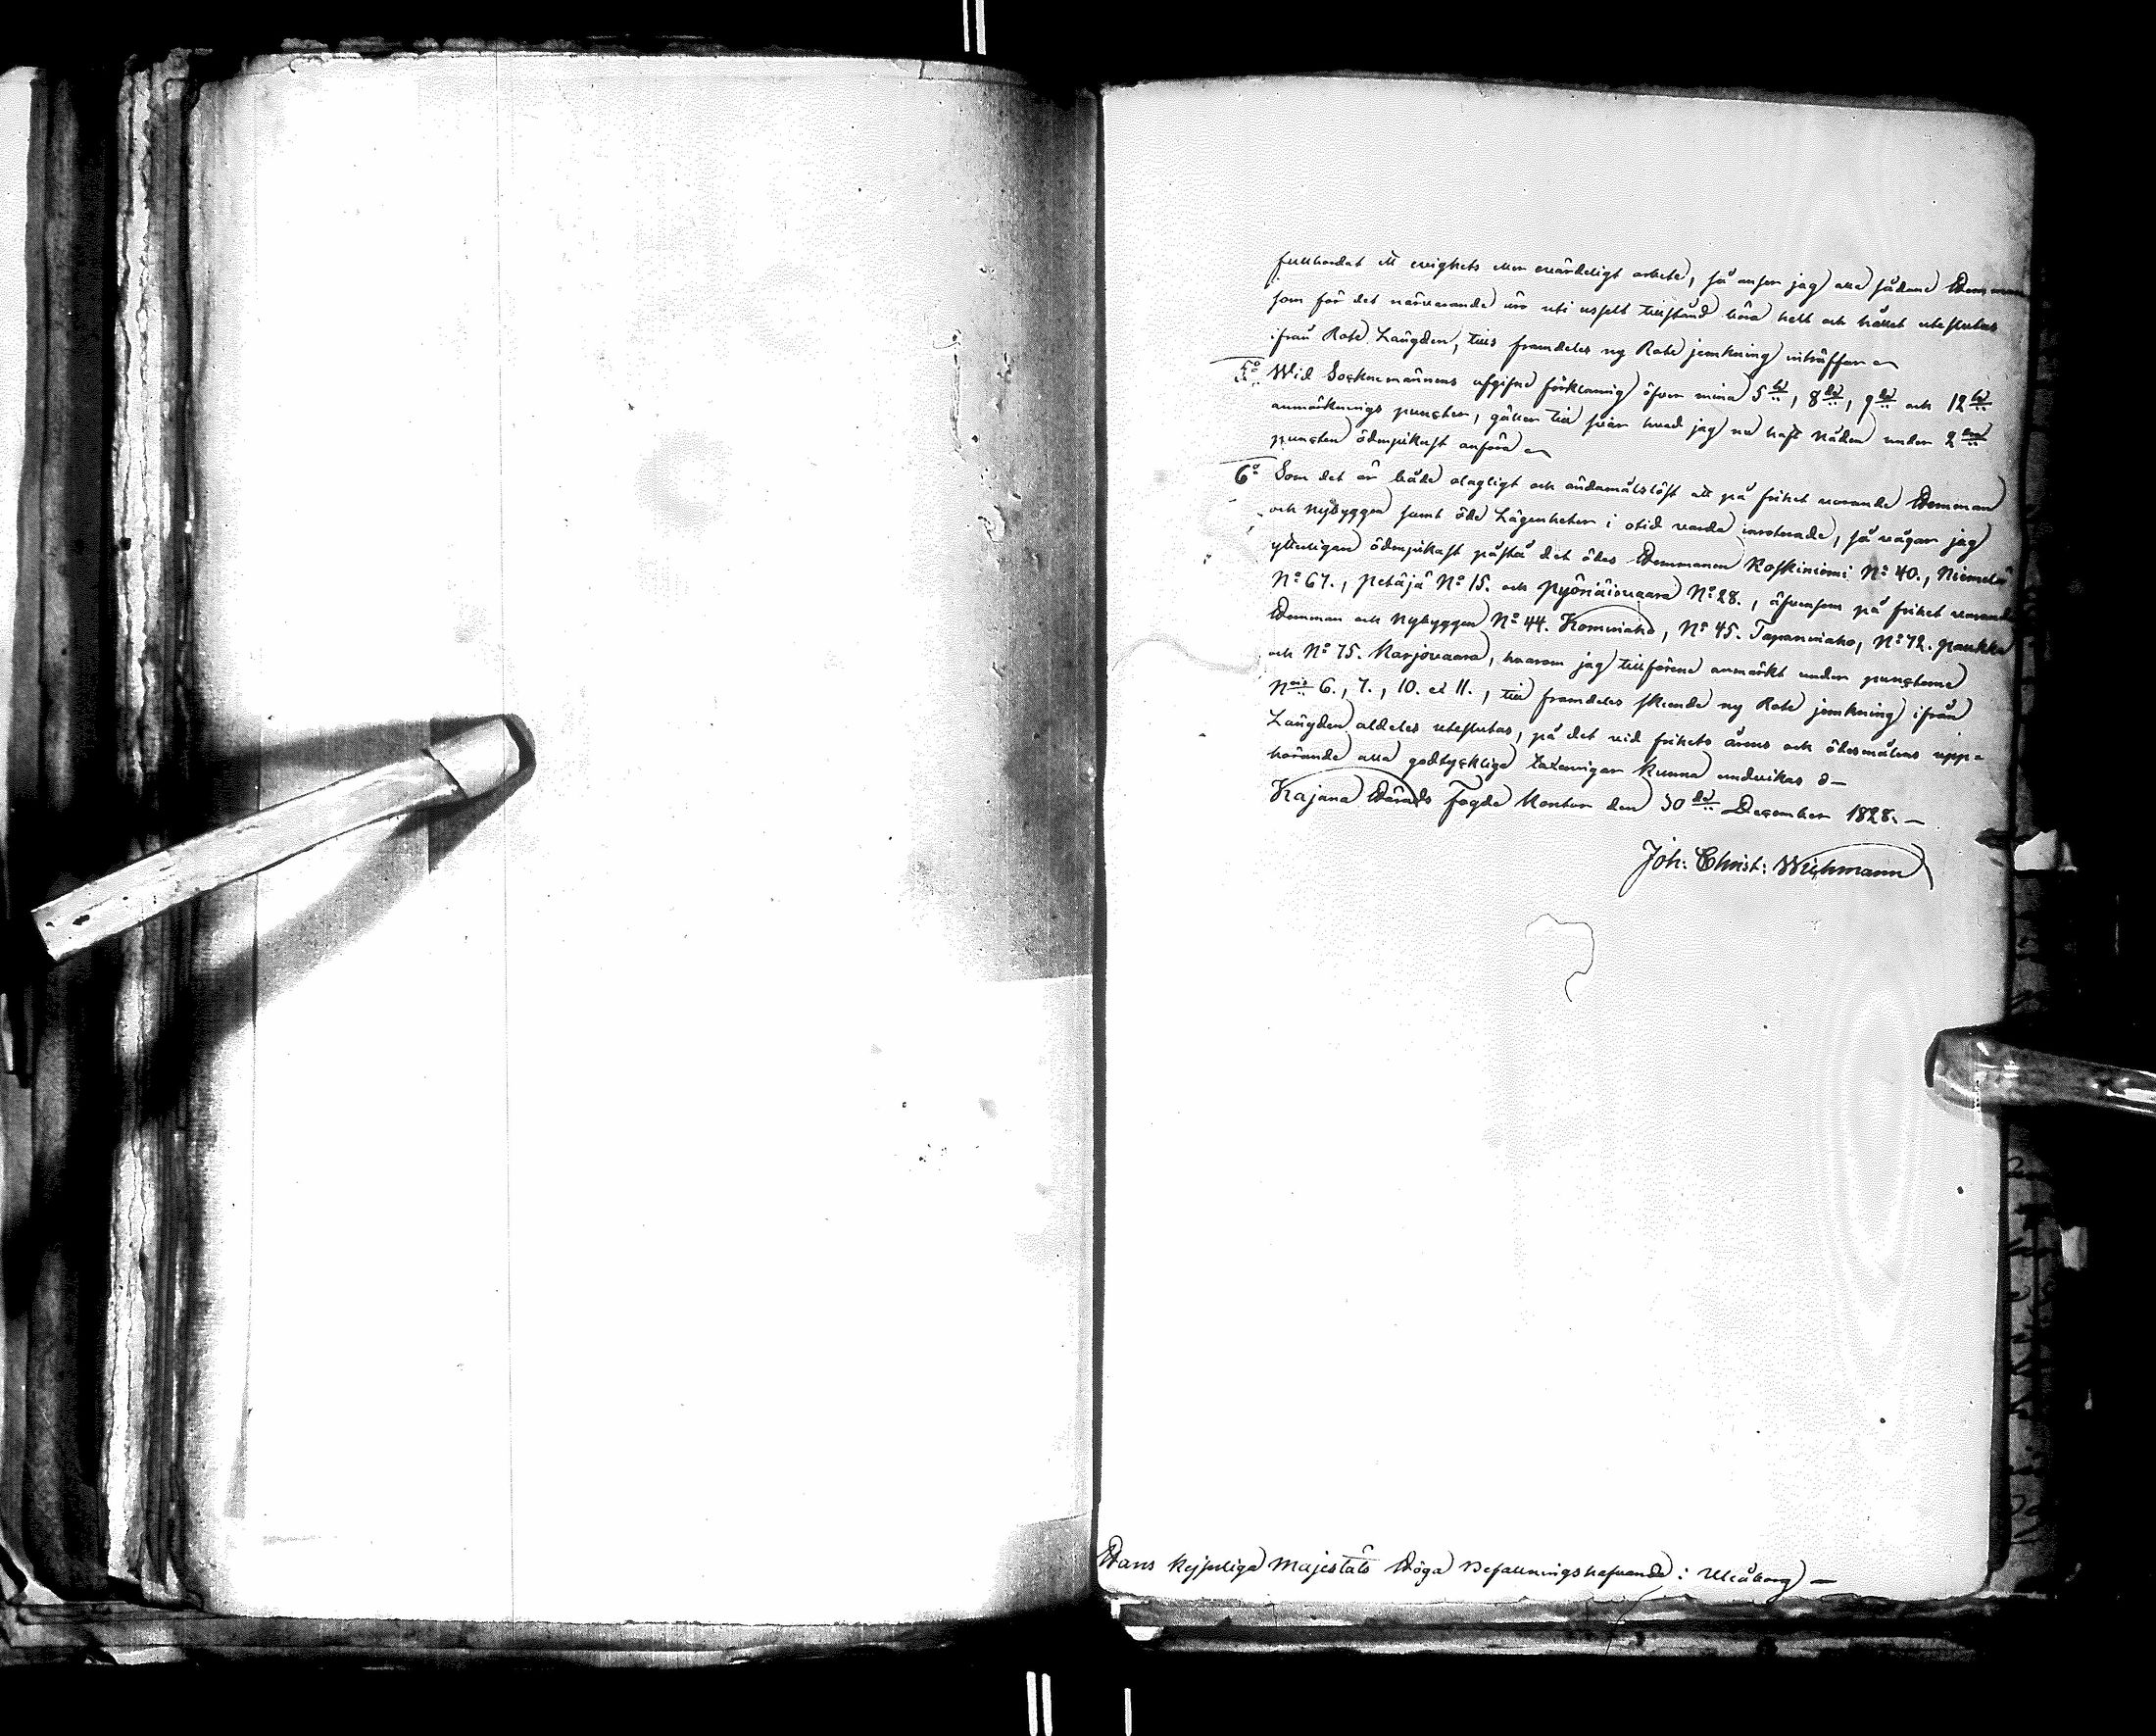 fullbordat ett evighets eller evärdeligt arbete, så anser jag alla sådane Hemman
som för det närvarande äro uti uselt tillstånd böra helt och hållet uteslutas
ifrån Rote Längden, tills framdeles ny Rote jemkning inträffar
5o Wid Socknemännens afgifne förklaring öfver mina 5te, 8de, 9de och 12te
anmärknings puncter, gäller till svar hvad jag nu haft nåden under 2dra
puncten ödmjukast anföra
6o Som det är både olagligt och ändamålslöst att på frihet varande Hemman
och nybyggen samt öde Lägenheter i otid varda inroterade, så vågar jag
ytterligare ödmjukast påstå det ödes Hemmanen Koskiniemi No 40., Niemelä
No 67., Petäjä No 15. och Pyöriäinvaara No 28., äfvensom på frihet varande
Hemman och Nybyggen No 44. Kominaho, No 45. Tapaninaho, No 72. Paukku
och No 75. Marjovaara, hvarom jag tillförene anmärkt under puncterne
Nris 6., 7., 10. et 11., till framdeles skeende ny Rote jemkning ifrån
Längden aldeles uteslutas, på det vid frihets årens och ödesmålens upp-
hörande alla godtycklige taxeringar kunna undvikas
Kajana Härads Fogde Kontor den 30de December 1828.
Joh: Christ: Wichmann
Hans Kejserliga Majestäts Höga Befallningshafvande i Uleåborg